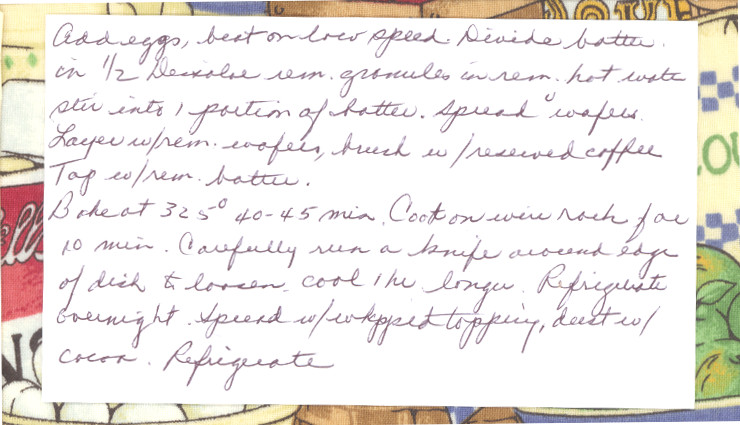 Add eggs, beat on low speed. Divide batter
in 1/2 Dissolve rem. granules in rem. hot wate
stir into 1 portion of batter. Spread wafers.
Layer w/rem. wafers, brush w/reserved coffee
Top w/rem. batter.
Bake at 325° 40-45 min. Cool on wire rack for
10 min. Carefully run a knife around edge
of dish to loosen. cool 1 hr longer. Refrigerate
overnight. Spread w/whipped topping, dust w/
cocoa. Refrigerate